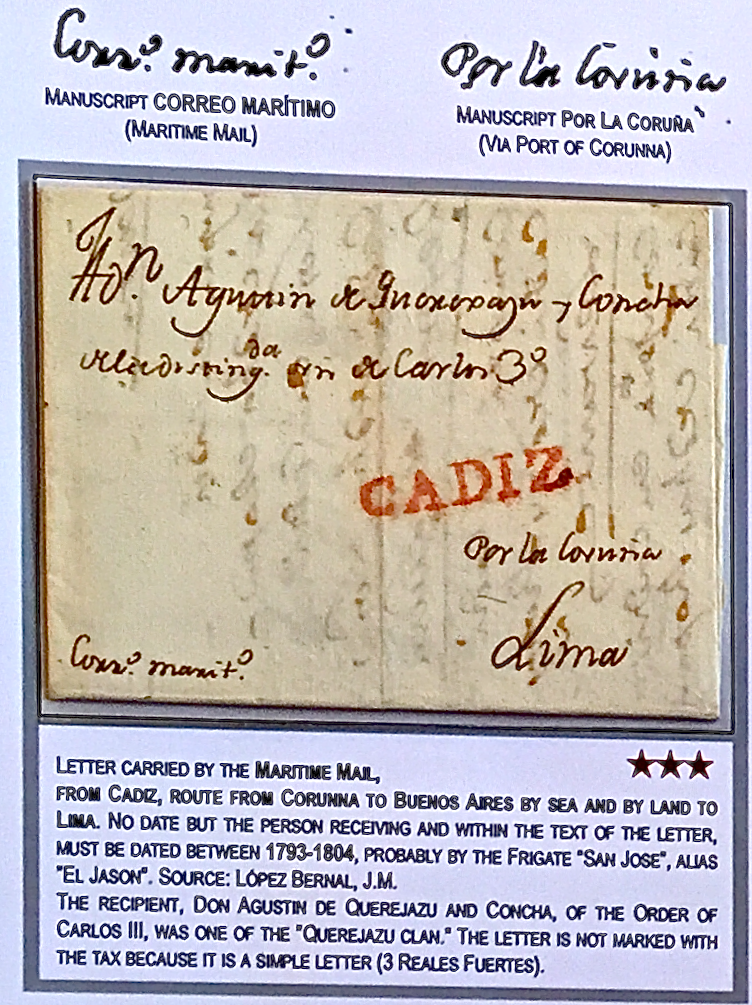 Corr.º marit.º
Por la Coruña
MANUSCRIPT CORREO MARÍTIMO
(MARITIME MAIL)
MANUSCRIPT POR LA CORUÑA
(VIA PORT OF CORUNNA)
A Dn. Agustin de Querexazu y Concha
de la disting.da orn de Carlos 3º
CADIZ
Por la Coruña
Lima
Corr.º marit.º
LETTER CARRIED BY THE MARITIME MAIL,
FROM CADIZ, ROUTE FROM CORUNNA TO BUENOS AIRES BY SEA AND BY LAND TO
LIMA. NO DATE BUT THE PERSON RECEIVING AND WITHIN THE TEXT OF THE LETTER,
MUST BE DATED BETWEEN 1793-1804, PROBABLY BY THE FRIGATE "SAN JOSE", ALIAS
"EL JASON". SOURCE: LÓPEZ BERNAL, J.M.
THE RECIPIENT, DON AGUSTIN DE QUEREJAZU AND CONCHA, OF THE ORDER OF
CARLOS III, WAS ONE OF THE "QUEREJAZU CLAN." THE LETTER IS NOT MARKED WITH
THE TAX BECAUSE IT IS A SIMPLE LETTER (3 REALES FUERTES).